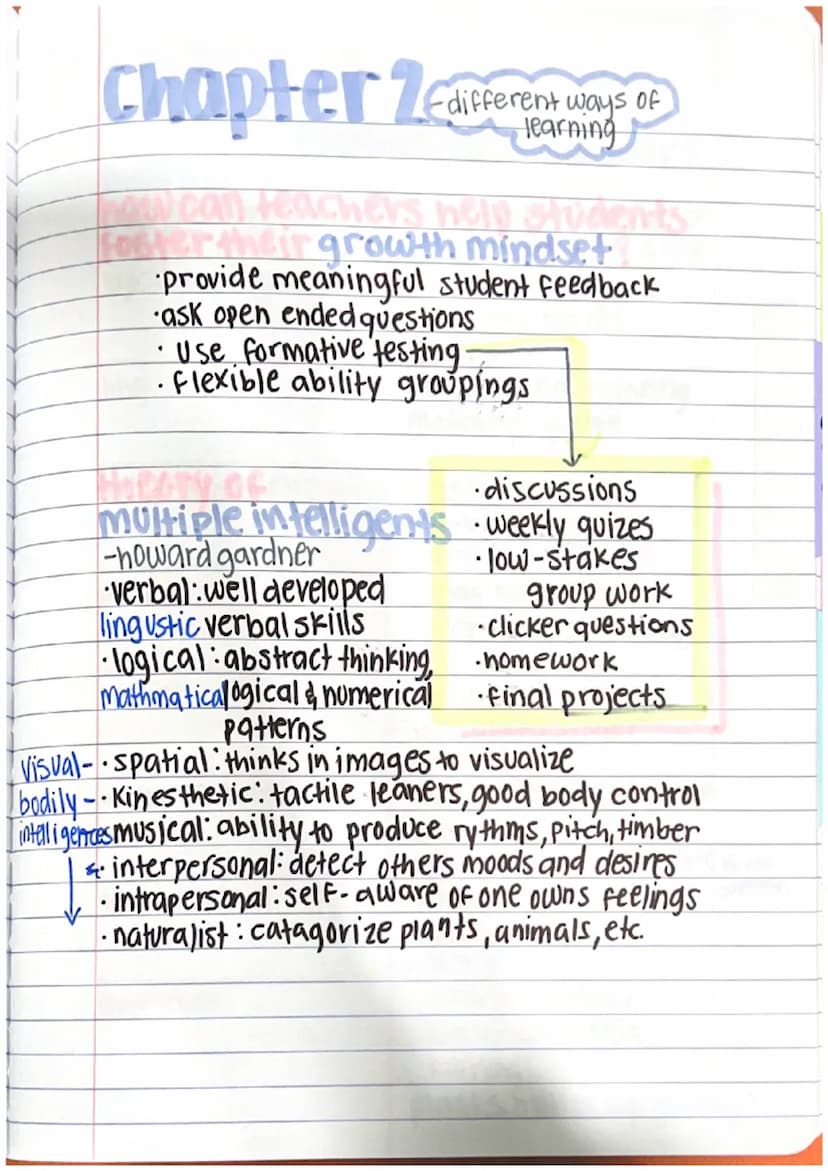 Chapter 2
-different ways of
learning
how can teachers help students
foster their growth mindset?
·provide meaningful student feedback
·ask open ended questions
· use formative testing
· flexible ability groupings
·discussions
·weekly quizes
·low-stakes
group work
·clicker questions
·homework
·final projects
theory of
multiple intelligents
-howard gardner
·verbal: well developed
lingustic verbal skills
·logical: abstract thinking,
mathmatical logical & numerical
patterns
visual- · spatial: thinks in images to visualize
bodily - · kinesthetic: tactile leaners, good body control
intelligences musical: ability to produce rythms, pitch, timber
· interpersonal: detect others moods and desires
· intrapersonal: self-aware of one owns feelings
· naturalist: catagorize plants, animals, etc.